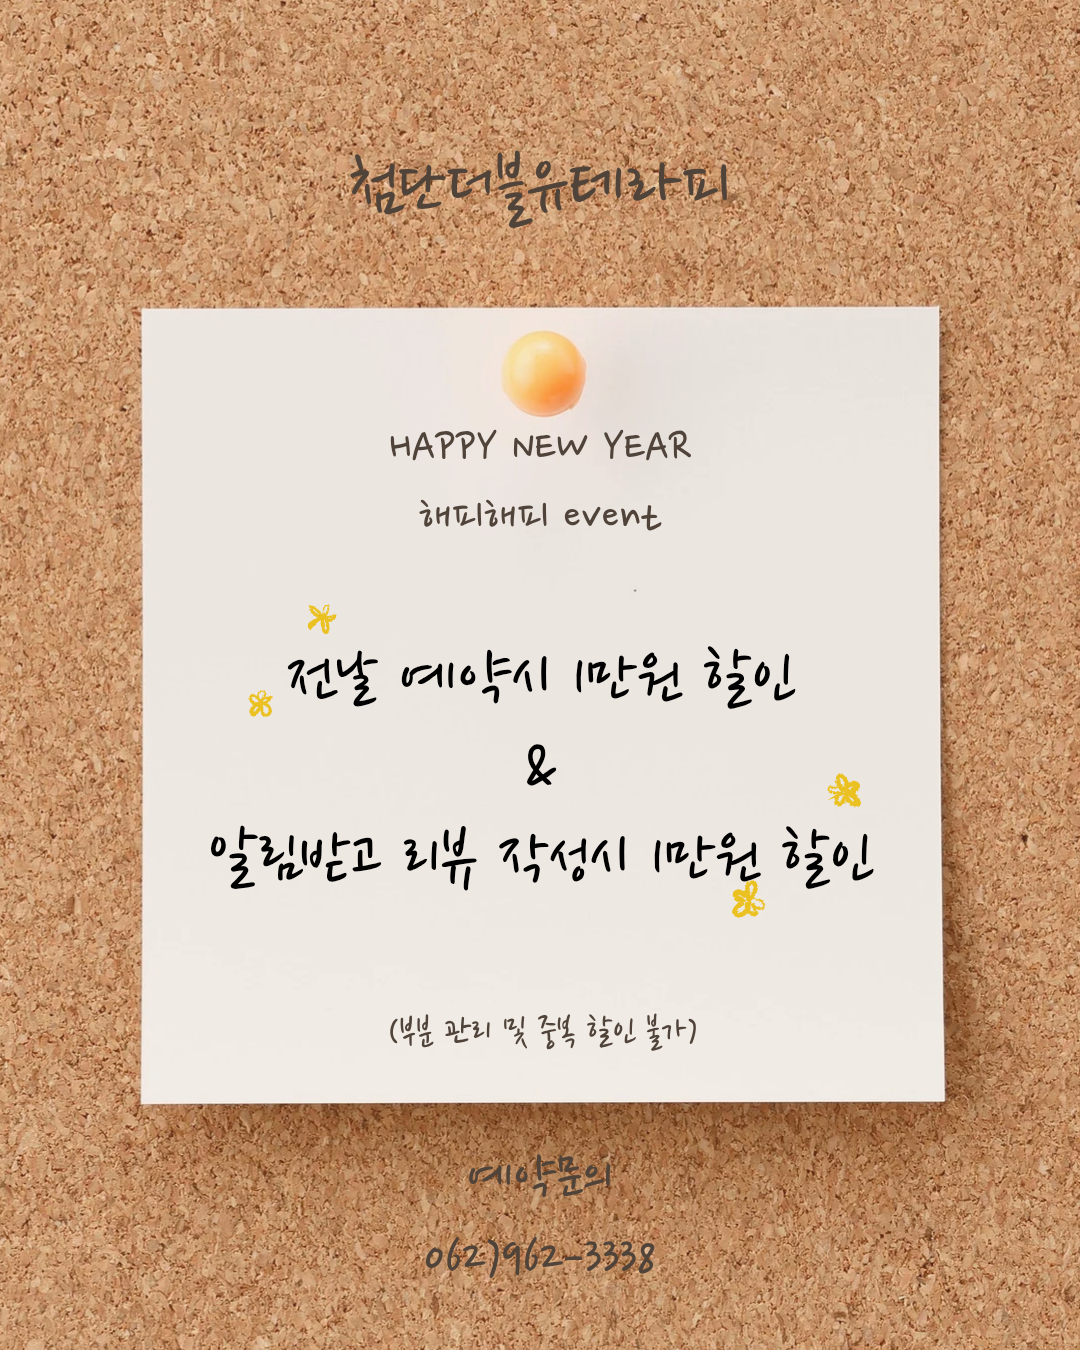 첨단더블유테라피
HAPPY NEW YEAR
해피해피 event
전날 예약시 1만원 할인
&
알림받고 리뷰 작성시 1만원 할인
(부분 관리 및 중복 할인 불가)
예약문의
062)962-3338